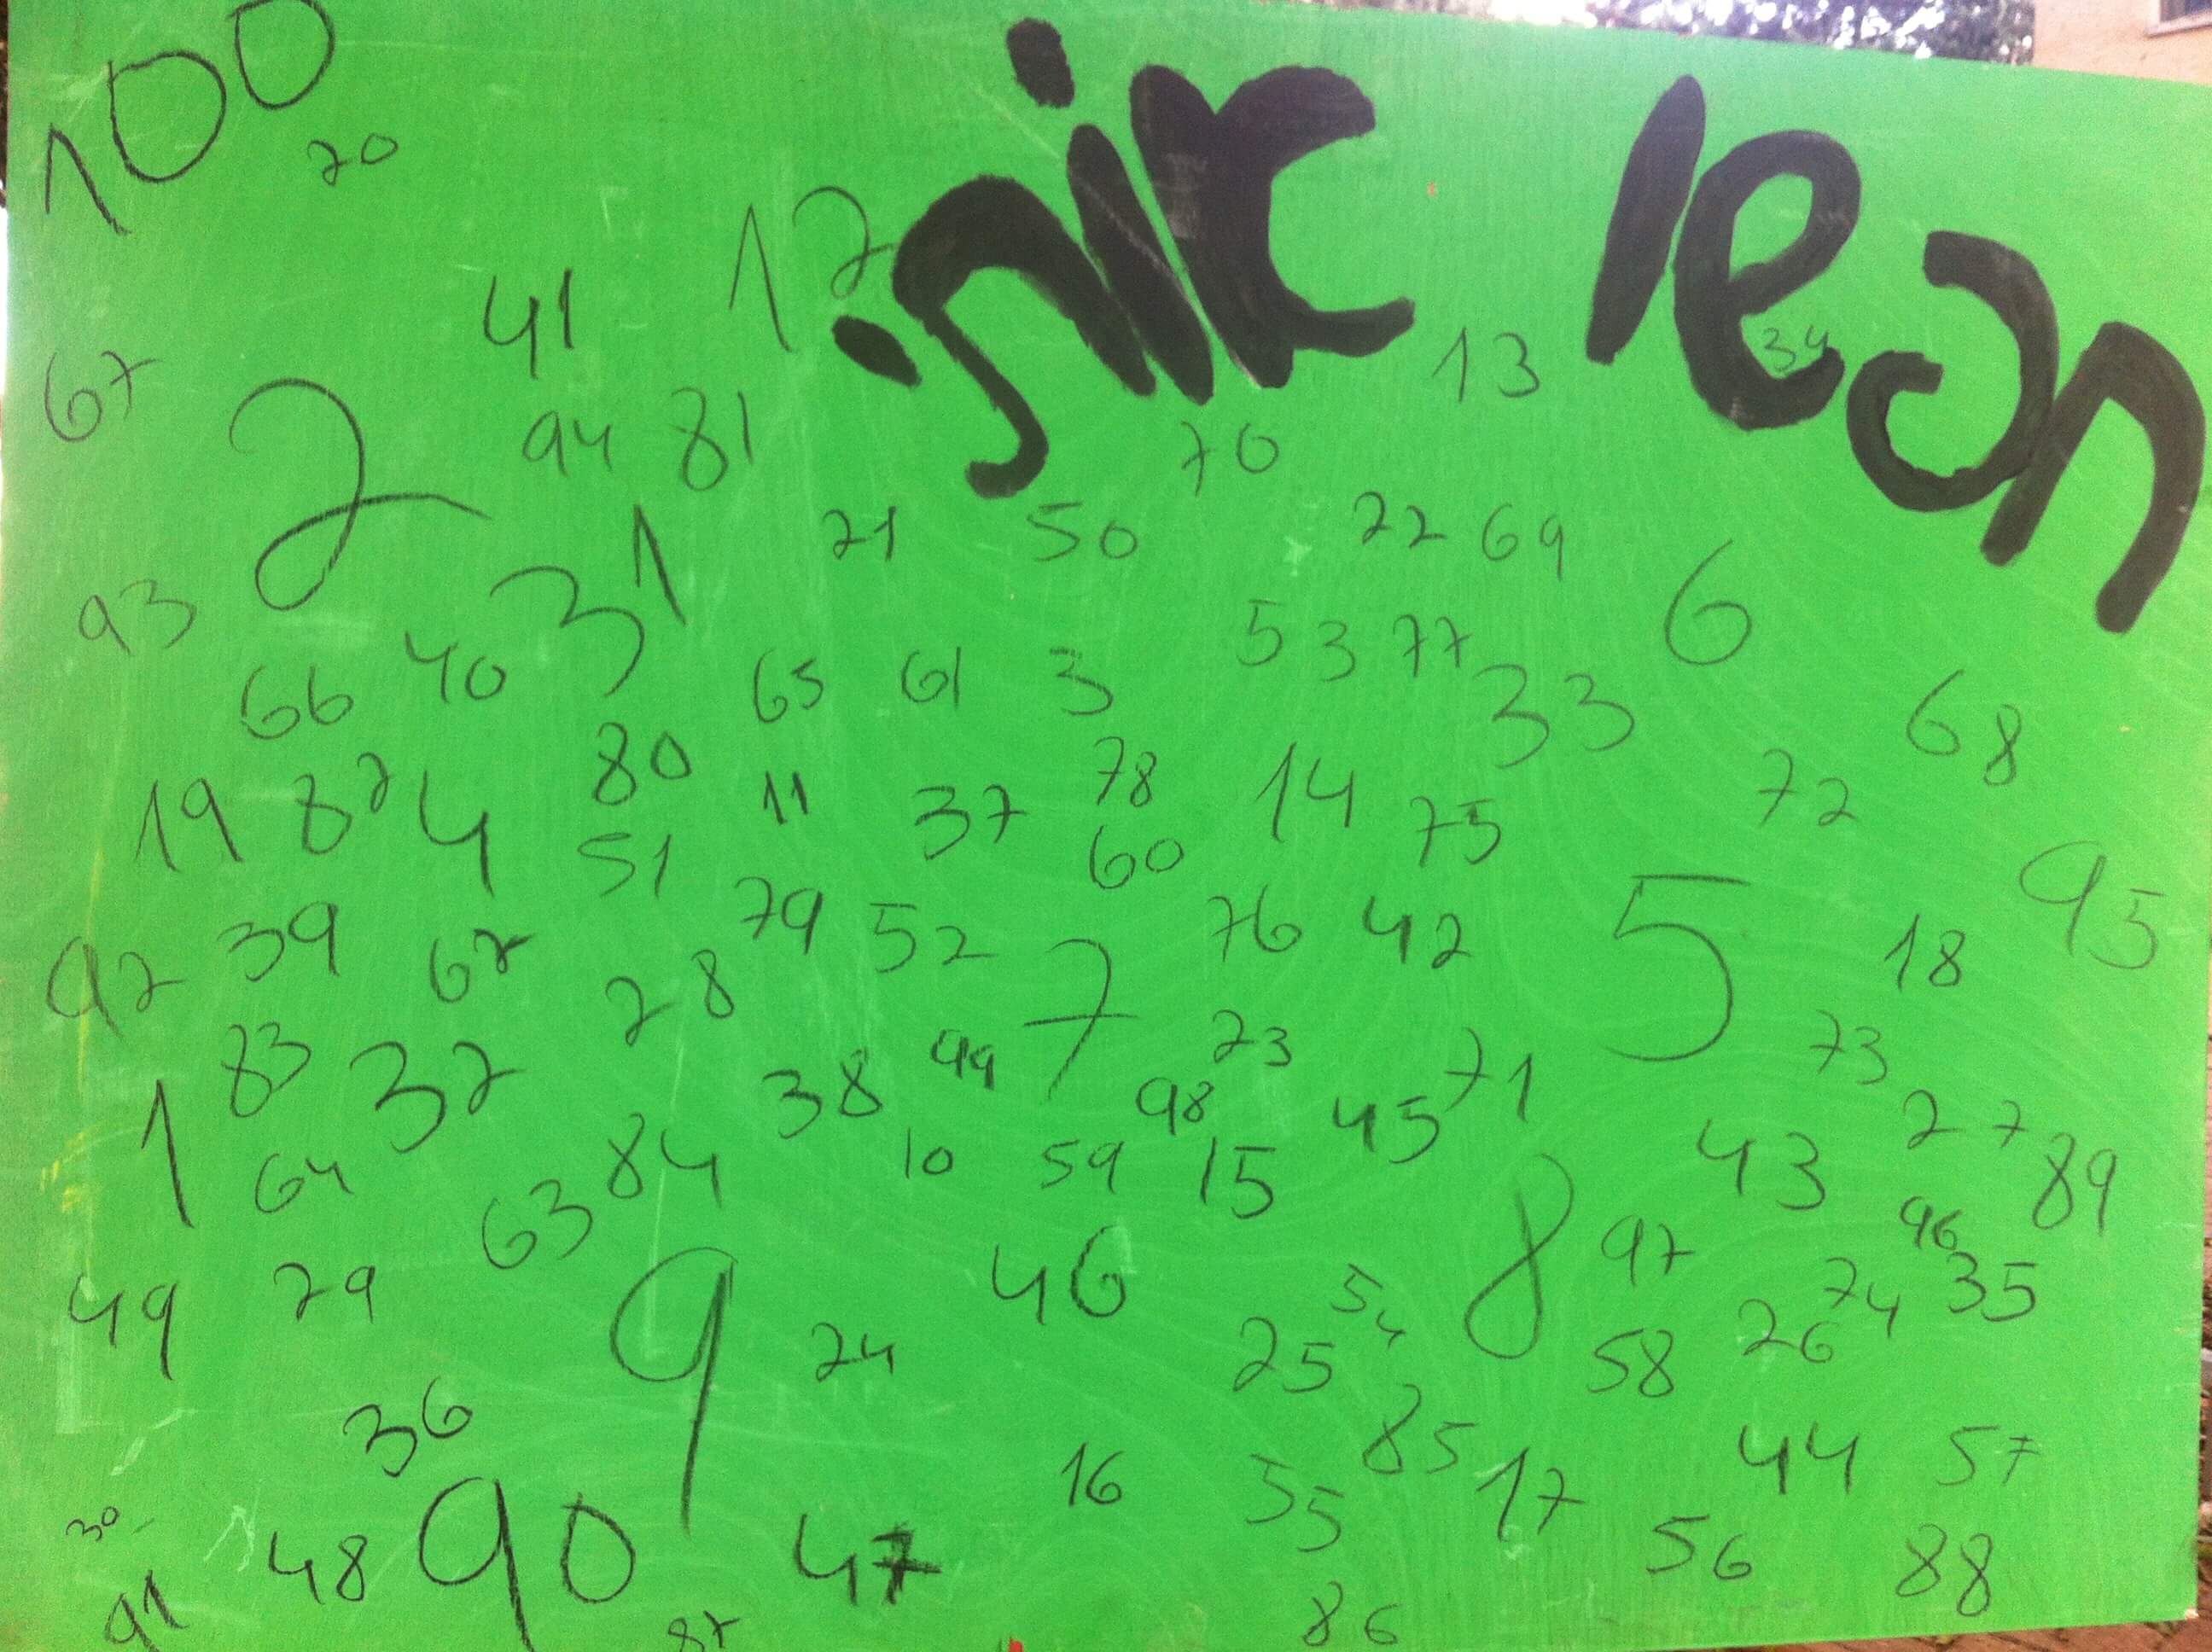 100
20
nik leon
12
41
13
34
67
2
94 81
70
31
21 50 22 69
93
6
53 77
66 40
65 61 3
33
68
19 82 4
80
11 37
78
14 75
72
51
60
95
92 39
79 52
76 42
5
18
62
28
7
83 32
38
99
23
71
73
1
98
45
27
64
84
10 59 15
43
89
63
8
97
96
49 29
9
46
54
74 35
24
25
58 26
36
85
44 57
16
55
17
30
48 90
47
56 88
91
87
86